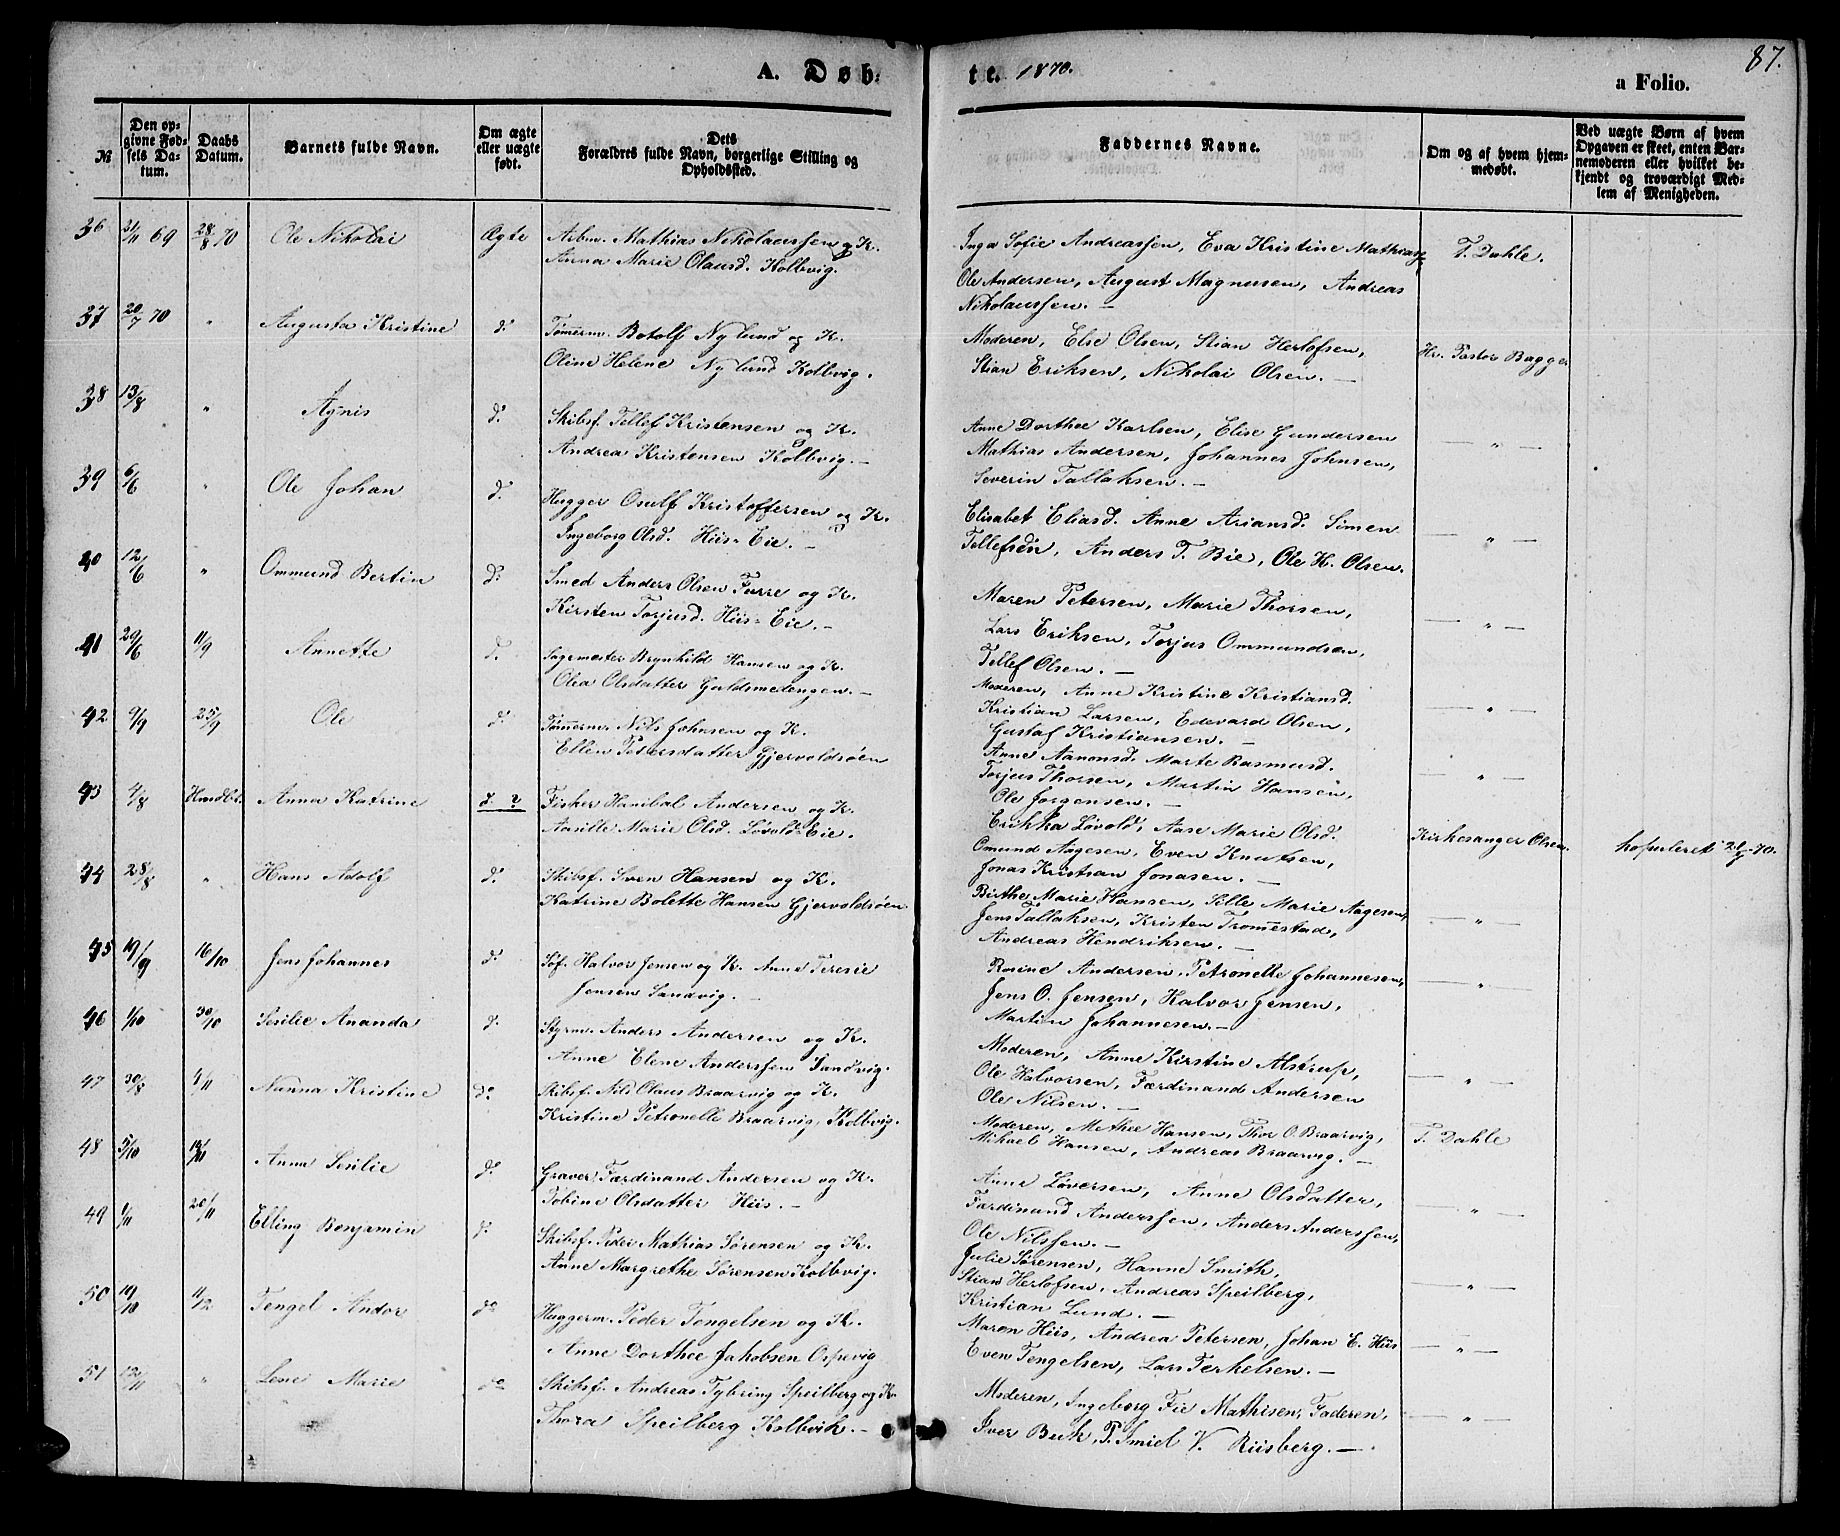 87.
A. Døb-
te. 1870.
a Folio.
№
Den op-
givne Fød-
sels Da-
tum.
Daabs
Datum.
Barnets fulde Navn.
Om ægte
eller uægte
født.
Dets
Forældres fulde Navn, borgerlige Stilling og
Opholdssted.
Faddernes Navne.
Om og af hvem hjem-
medøbt.
Ved uægte Børn af hvem
Opgaven er skeet, enten Bar-
nemoderen eller hvilket be-
kjendt og troværdigt Med-
lem af Menigheden.
36 21/11 69 28/8 70 Ole Nikolai Ægte Arbm. Mathias Nikolaussen og K.
Anna Marie Olausd. Kolbvig.
Inga Sofie Andreassen, Eva Kristine Mathiass
Ole Andersen, August Magnussen, Andreas
Nikolaussen. —
T. Dahle.
37 20/7 70 " Augusta Kristine d: Tømerm. Botolf Nylund og K.
Oline Helene Nylund Kolbvig.
Moderen, Else Olsen, Stian Herlofsen,
Stian Eriksen, Nikolai Olsen. —
Hr. Pastor Bagger
38 13/8 " Agnis d: Skibsf. Tellef Kristensen og K.
Andrea Kristensen Kolbvig. —
Anne Dorthee Karlsen, Elise Gundersen
Mathias Andersen, Johannes Johnsen,
Severin Tallaksen. —
— " —
39 6/6 " Ole Johan d: Hugger Osulf Kristoffersen og K.
Ingeborg Olsd. Hiis-Eie. —
Elisabet Eliasd. Anne Ariansd. Simen
Tellefsen, Anders T. Bie, Ole H. Olsen.
— " —
40 12/6 " Ommund Bertin d: Smed Anders Olsen Furre og K.
Kirsten Torjusd. Hiis-Eie. —
Maren Petersen, Marie Thorsen,
Lars Eriksen, Torjus Ommundsen,
Tellef Olsen. —
— " —
41 29/6 11/9 Annette d. Sagmester Brynhild Hansen og K.
Olea Olsdatter Guldsmedengen. —
Moderen, Anne Kristine Kristiansd.
Kristian Larsen, Edevard Olsen,
Gustaf Kristiansen. —
— " —
42 9/9 25/9 Ole d: Tømerm. Nils Johnsen og K.
Ellen Petersdatter Gjervoldsøen
Anne Aanonsd. Marte Rasmusd.
Torjus Thorsen, Martin Hansen,
Ole Jørgensen. —
— " —
43 4/8 Hmdbt. Anna Katrine d. ? Fisker Hanibal Andersen og K.
Aasille Marie Olsd. Løvold-Eie.
Erikka Løvold, Aase Marie Olsd.
Omund Aagesen, Even Knutsen,
Jonas Kristian Jonasen. —
Kirkesanger Olsen.
kopuleret 21/9-70.
44 28/8 " Hans Adolf d. Skibsf. Sven Hansen og K.
Katrine Bolette Hansen Gjervoldsøen
Birthe Marie Hansen, Sille Marie Aagesen,
Jens Tallaksen, Kristen Tromestad,
Andreas Hendriksen. —
— " —
45 19/9 16/10 Jens Johannes d. Søf. Halvor Jensen og K. Anne Teresie
Jensen Sandvig. —
Rosine Andersen, Petronelle Johannesen,
Jens O. Jensen, Halvor Jensen,
Martin Johannesen. —
— " —
46 1/10 30/10 Sesilie Ananda d. Styrm. Anders Andersen og K.
Anne Elene Anderssen Sandvig.
Moderen, Anne Kirstine Alstrup,
Ole Halvorsen, Færdinand Andersen
Ole Nilsen. —
— " —
47 30/8 4/11 Nunna Kristine do. Skibsf. Nils Olaus Braarvig og K.
Kristine Petronelle Braarvig, Kolbvig.
Moderen, Methee Hansen, Thor O. Braarvig,
Mikael Hansen, Andreas Braarvig. —
T. Dahle
48 5/10 13/11 Anna Sesilie d. Graver Færdinand Andersen og K.
Tobine Olsdatter Hiis. —
Anne Løversen, Anne Olsdatter,
Færdinand Anderssen, Anders Anderssen,
Ole Nilssen. —
— " —
49 1/11 20/11 Elling Benjamin d. Skibsf. Peder Mathias Sørensen og K.
Anne Margrethe Sørensen Kolbvig.
Julie Sørensen, Hanne Smith,
Stian Herlofsen, Andreas Speilberg,
Kristian Lund. —
— " —
50 19/10 11/12 Tengel Andor do Huggerm. Peder Tengelsen og K.
Anne Dorthee Jakobsen Ospevig
Maren Hiis, Andrea Petersen, Johan E. Hiis
Even Tengelsen, Lars Terkelsen. —
— " —
51 12/11 " Lene Marie do Skibsf. Andreas Tybring Speilberg og K.
Thora Speilberg Kolbvik. —
Moderen, Ingeborg Fie Mathisen, Faderen,
Iver Buck, P. Smiel V. Riisberg. —
— " —